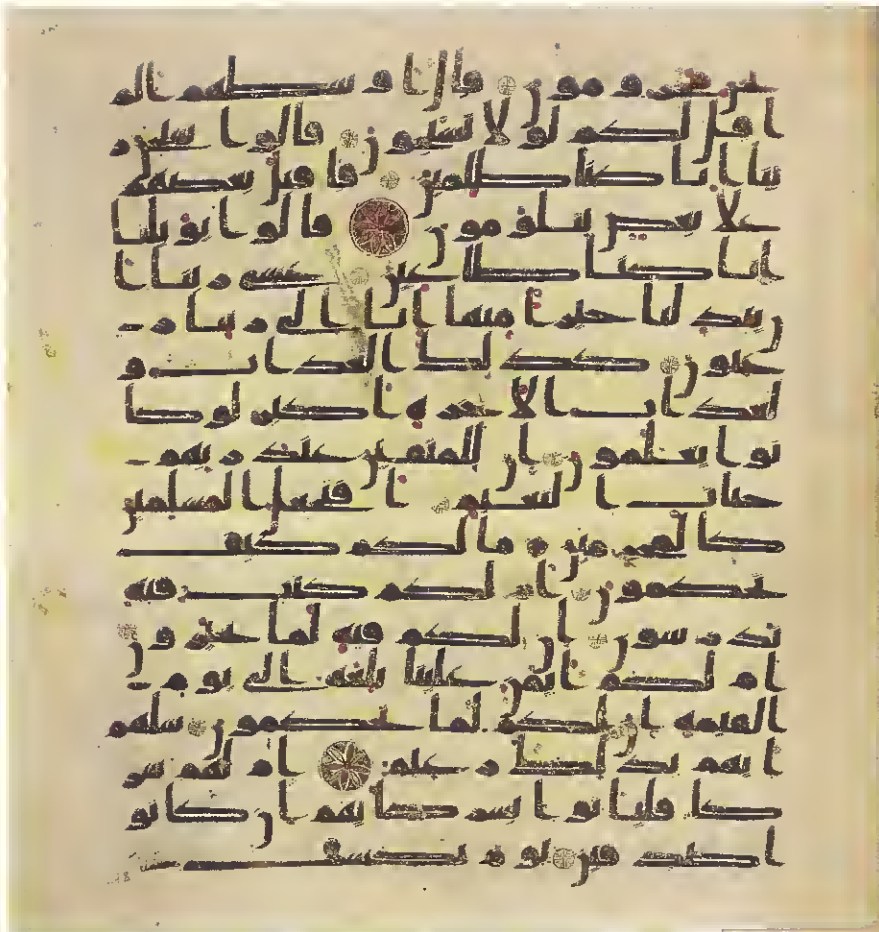 نحن محرومون قال اوسطهم الم
اقل لكم لولا تسبحون قالوا سبحن ر
بنا انا كنا ظلمين فاقبل بعضهم
علا بعض يتلومون قالوا يويلنا
انا كنا طغين عسى ربنا ان
يبدلنا خيرا منها انا الى ربنا ر
غبون كذلك العذاب و
لعذاب الاخرة اكبر لو كا
نوا يعلمون ان للمتقين عند ربهم
جنات النعيم افنجعل المسلمين
كالمجرمين ما لكم كيف
تحكمون ام لكم كتب فيه
تدرسون ان لكم فيه لما تخيرون
ام لكم ايمن علينا بلغة الى يوم
القيمة ان لكم لما تحكمون سلهم
ايهم بذلك زعيم ام لهم شر
كا فلياتوا بشركايهم ان كانو
ا صدقين يوم يكشف